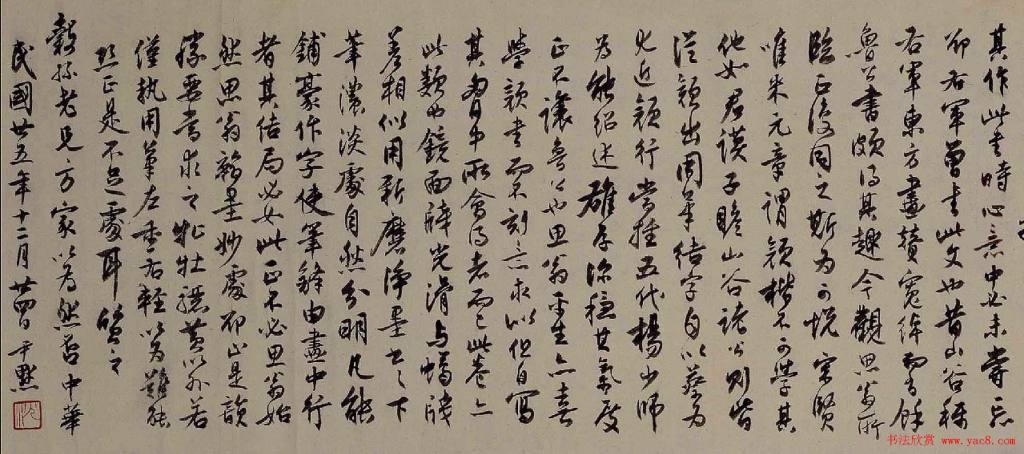 其作此書時心意中必未嘗忘
卻右軍曾書此文也昔山谷稱
右軍東方畫贊寬綽而有餘
魯公書頗得其趣今觀思翁所
臨正復同之斯為可悅宋賢
唯米元章謂顏楷不可學其
他如君謨子瞻山谷諸公則皆
從顏出用筆結字自以蔡為
尤近顏行當推五代楊少師
為能紹述雖存深穩其氣度
正不讓魯公也思翁平生亦喜
學顏書而不刻意求似但自寫
其胸中所會得者而已此卷亦
此類也鏡面牋光滑與蠟牋
差相似用新磨淨墨書之下
筆濃淡處自然分明凡能
鋪豪作字使筆鋒由畫中行
者其結局必如此正不必思翁始
然思翁翰墨妙處卻正是韻
勝要當求之牝牡驪黃以外若
僅執用筆左重右輕以為難能
正是不足處耳質之
穀孫老兄方家以為然否中華
民國廿五年十二月廿四日尹默
沈
书法欣赏 www.yac8.com